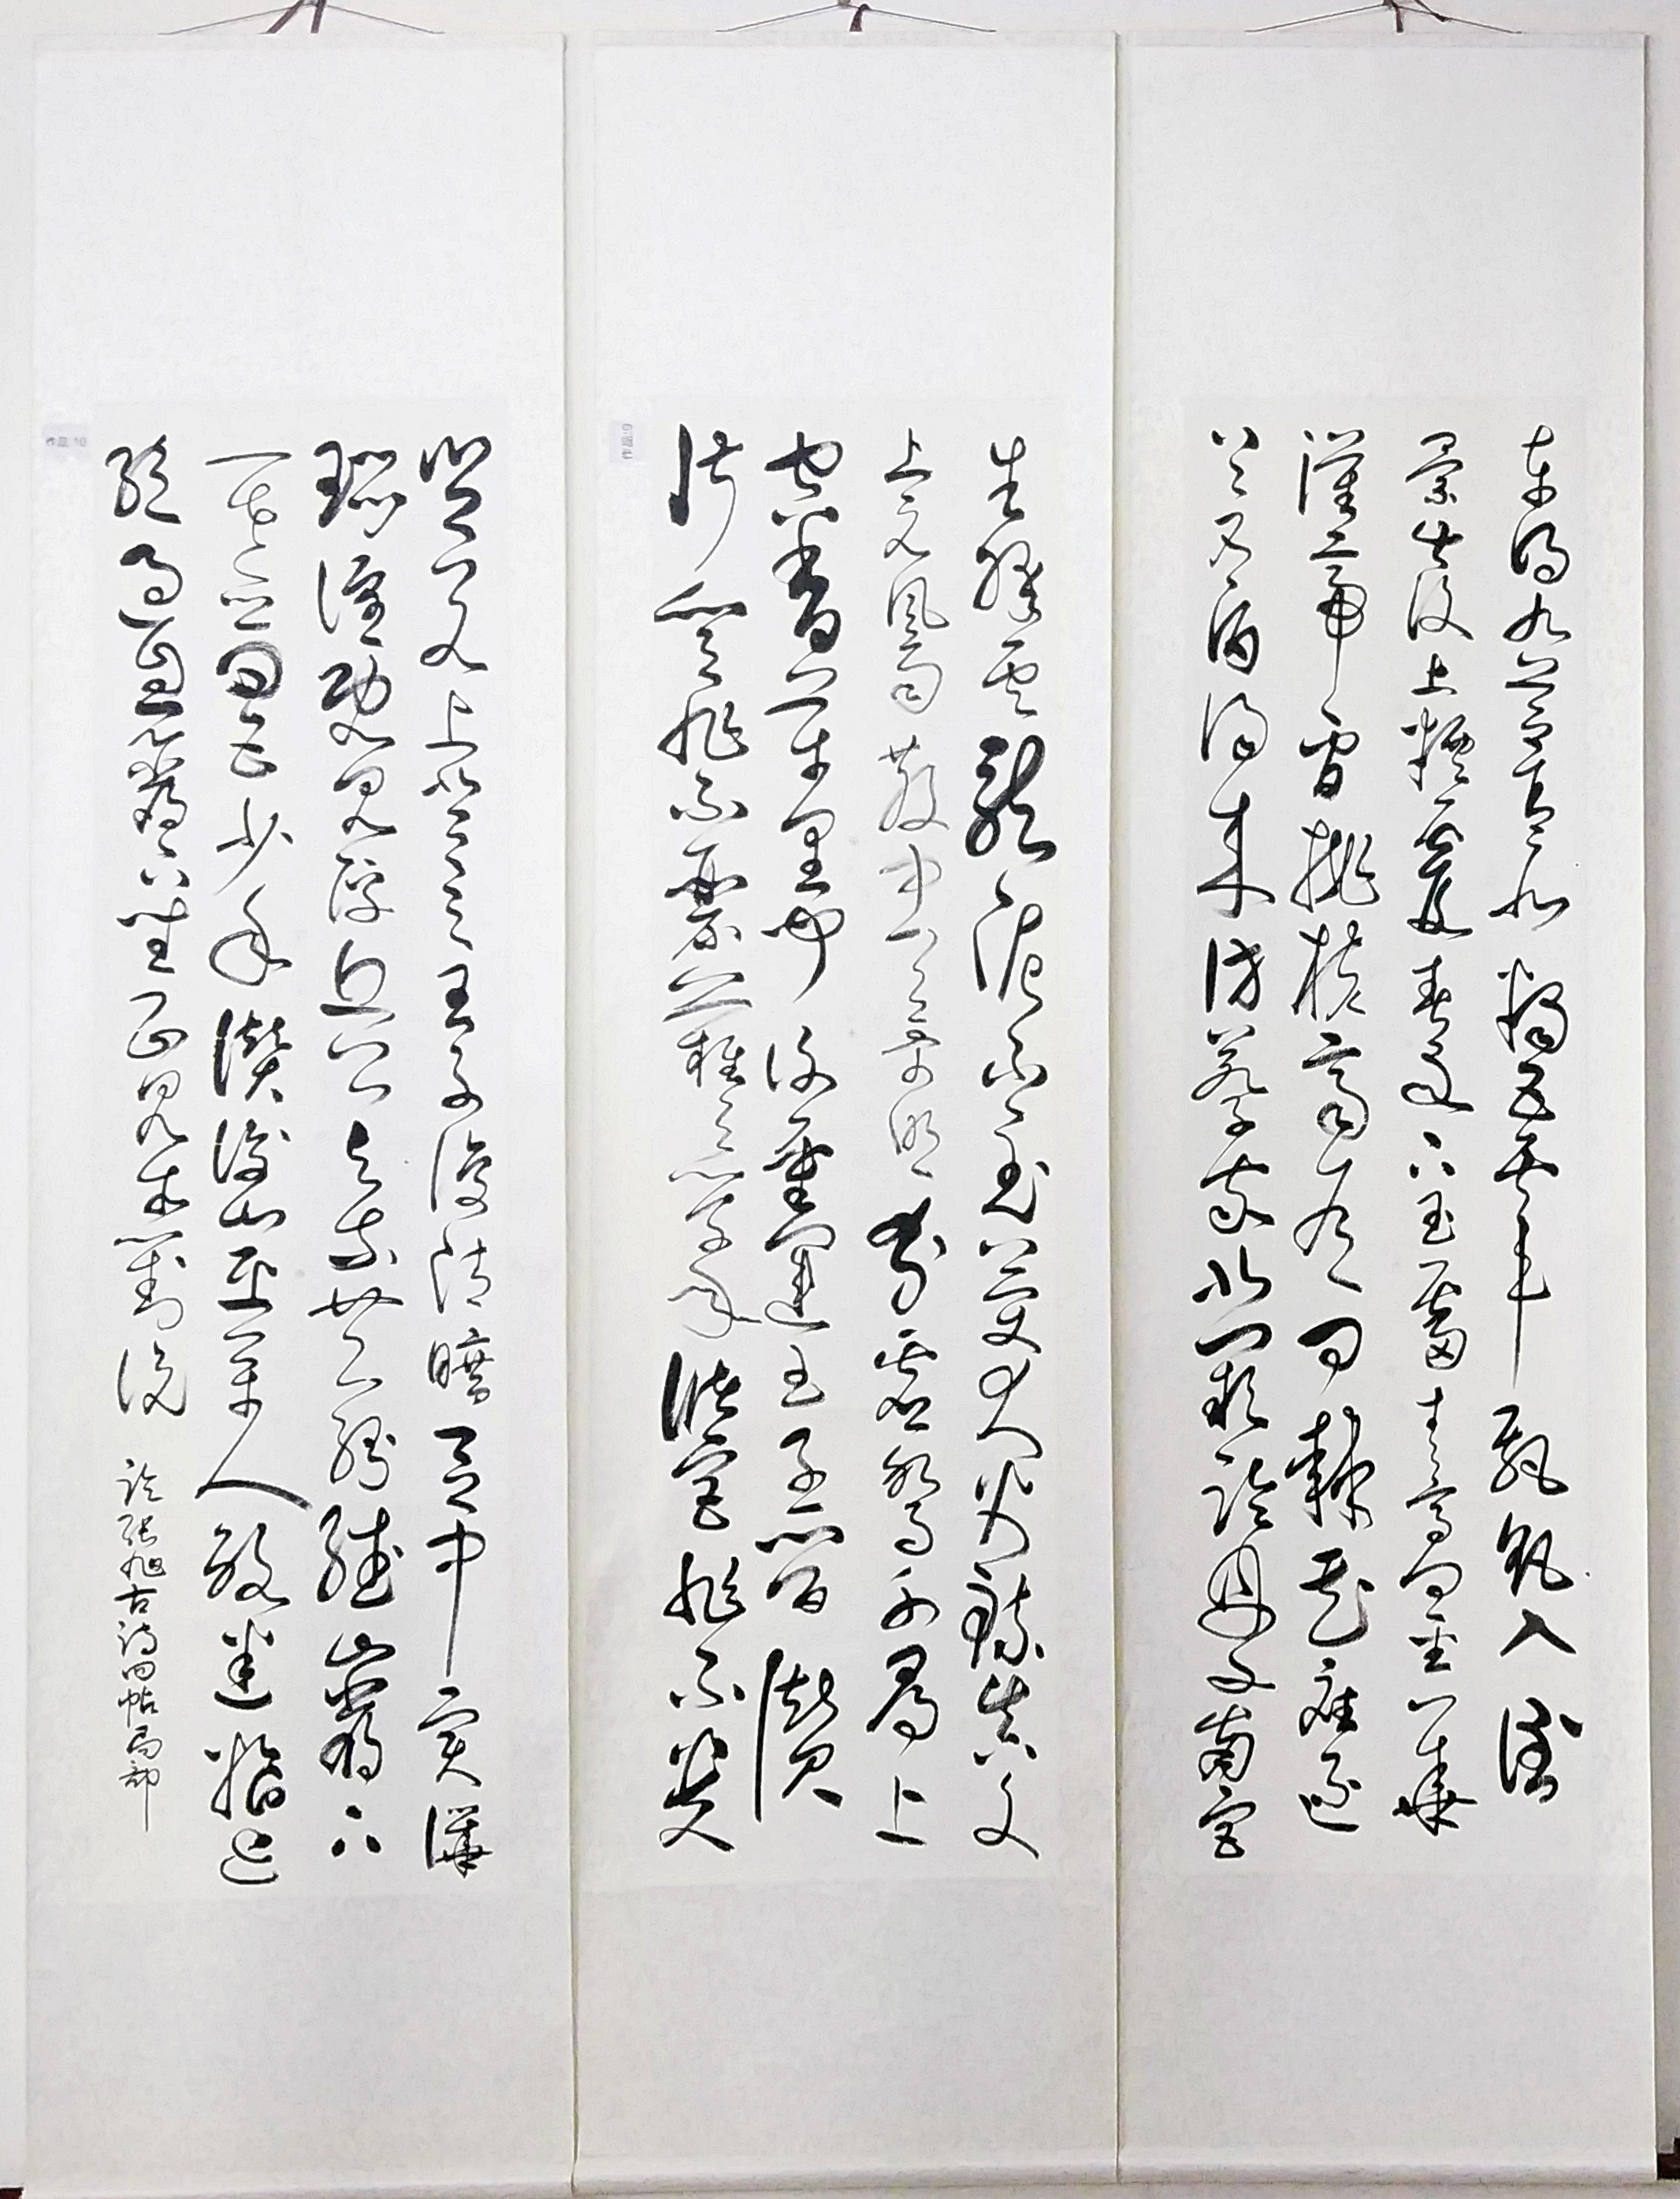 東明九芝蓋北燭五雲車飄飖入倒
景出沒上煙霞春泉下玉霤青鳥向金華
漢帝看桃核齊侯問棘花應逐
上元酒同來訪蔡家北闕臨丹水南宮
生絳雲龍泥印玉簡大火煉真文
上元風雨散中天哥吹分虛駕千尋上
空香萬里聞謝靈運王子晉贊
淑質非不麗難以之百年儲宮非不貴
豈若上登天王子復清曠區中實譁
囂喧既見浮丘公與爾共紛繙巖下
一老公四五少年贊衡山采藥人路迷糧亦
絕過息巖下坐正見相對說
臨張旭古詩四帖局部